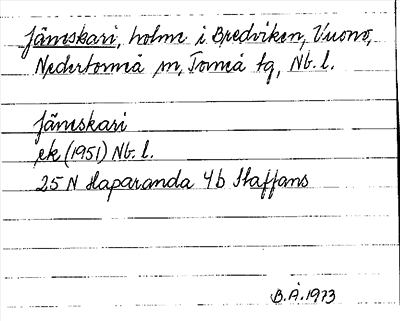 Jäneskari, holme i Bredviken, Vuono,
Nedertorneå sn, Torneå tg, Nb. l.
Jäneskari
ek (1951) Nb. l.
25 N Haparanda 4b Staffans
B.Å. 1973